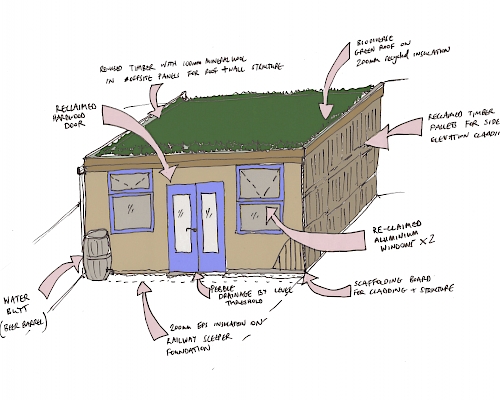 RE-USED TIMBER WITH 100mm MINERAL WOOL
IN OFFSITE PANELS FOR ROOF + WALL STRUCTURE
BIODIVERSE
GREEN ROOF ON
200mm recycled INSULATION
RECLAIMED
HARDWOOD
DOOR
RECLAIMED TIMBER
PALLETS FOR SIDE
ELEVATION CLADDIN
RE-CLAIMED
ALUMINIUM
WINDOWS X2
SCAFFOLDING BOARD
FOR CLADDING + STRUCTURE
PEBBLE
DRAINAGE BY LEVEL
THRESHOLD
200mm EPS INSULATION ON
RAILWAY SLEEPER
FOUNDATION
WATER
BUTT
(BEER BARREL)